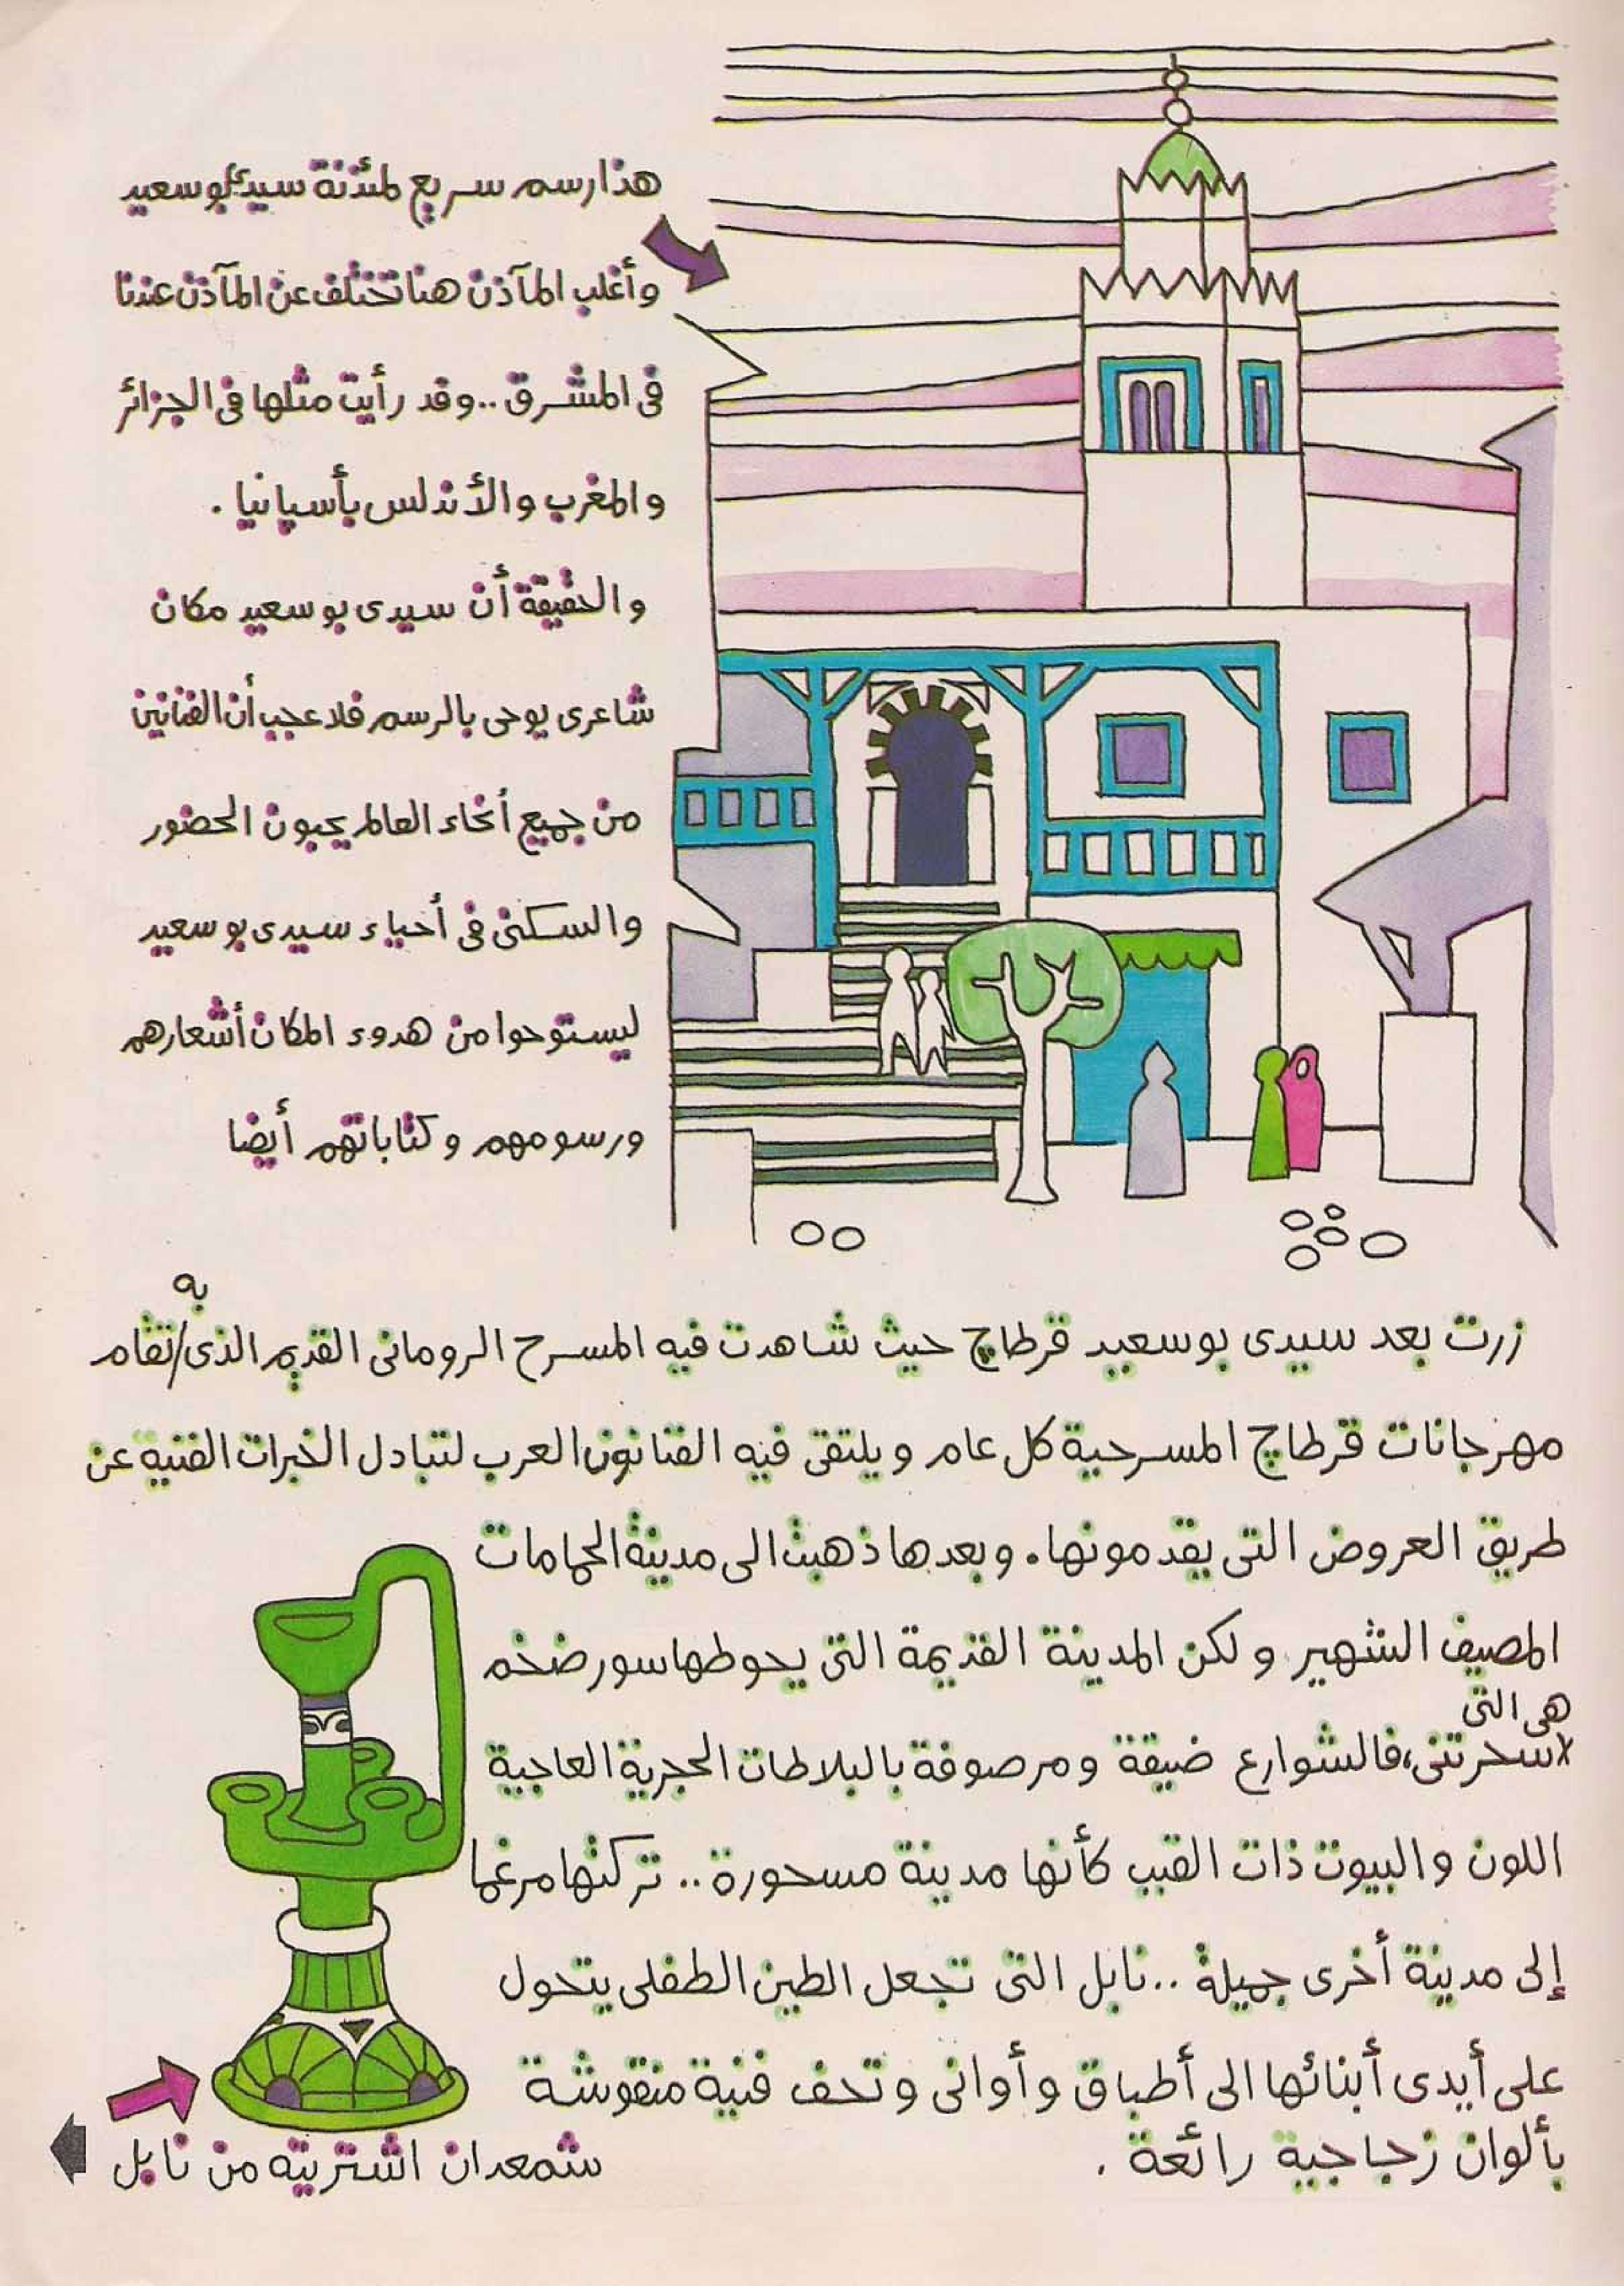 هذا رسم سريع لمئذنة سيدى بو سعيد
وأغلب المآذن هنا تختلف عن المآذن عندنا
فى المشرق .. وقد رأيت مثلها فى الجزائر
والمغرب والأندلس بأسبانيا .
والحقيقة أن سيدى بو سعيد مكان
شاعرى يوحى بالرسم فلا عجب أن الفنانين
من جميع أنحاء العالم يحبون الحضور
والسكنى فى أحياء سيدى بو سعيد
ليستوحوا من هدوء المكان أشعارهم
ورسومهم وكتاباتهم أيضا
زرت بعد سيدى بو سعيد قرطاچ حيث شاهدت فيه المسرح الرومانى القديم الذى / تقام
به
مهرجانات قرطاچ المسرحية كل عام ويلتقى فيه الفنانون العرب لتبادل الخبرات الفنية عن
طريق العروض التى يقدمونها . وبعدها ذهبت الى مدينة الحمامات
المصيف الشهير ولكن المدينة القديمة التى يحوطها سور ضخم
هى التى
سحرتنى ، فالشوارع ضيقة ومرصوفة بالبلاطات الحجرية العاجية
اللون والبيوت ذات القبب كأنها مدينة مسحورة .. تركتها مرغما
إلى مدينة أخرى جميلة .. نابل التى تجعل الطين الطفلى يتحول
على أيدى أبنائها الى أطباق وأوانى وتحف فنية منقوشة
بألوان زجاجية رائعة .
شمعدان اشتريته من نابل